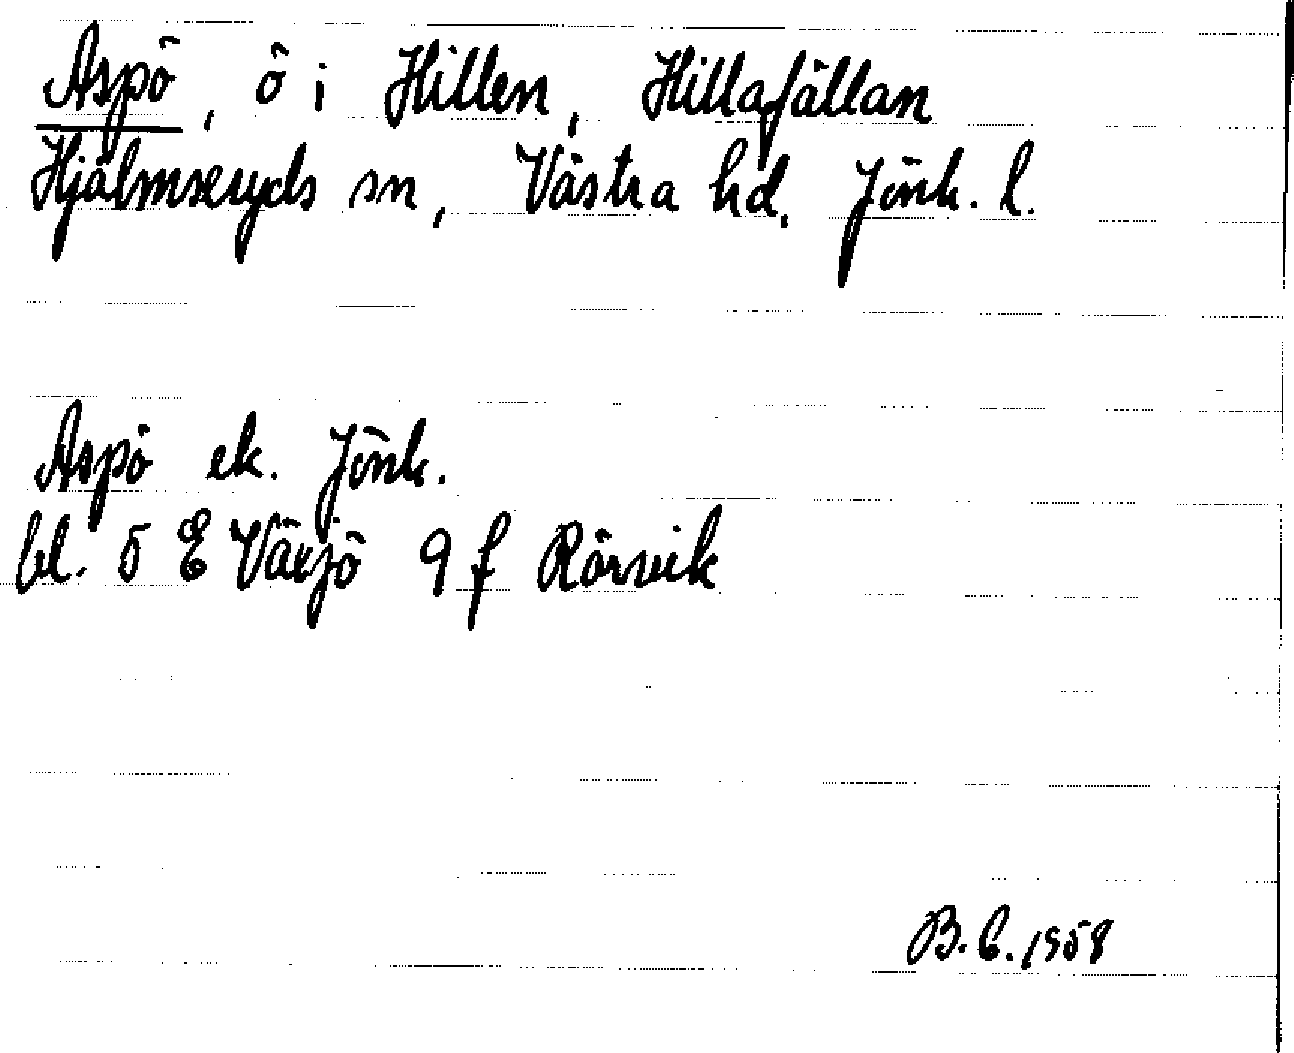 Aspö, ö i Hillen, Hillafällan
Hjälmseryds sn, Västra hd, Jönk. l.
Aspö ek. Jönk.
bl. 5 E Växjö 9 f Rörvik
B. E. 1958